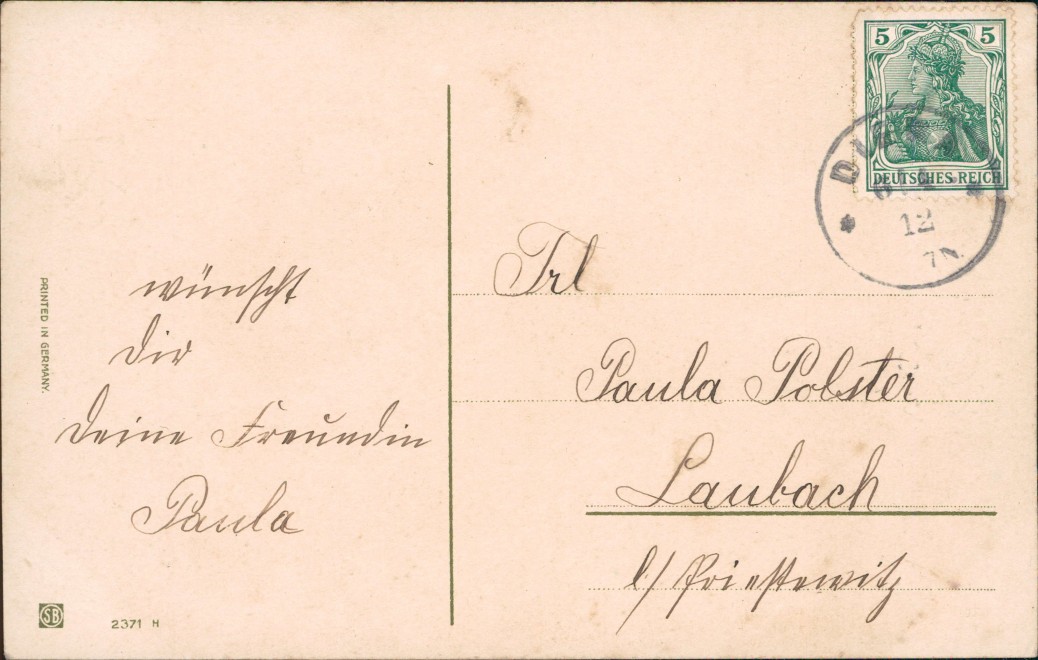 5 5
DEUTSCHES REICH
12
7N.
wünscht
Dir
Deine Freundin
Paula
Frl
Paula Polster
Laubach
b/ Priestewitz
PRINTED IN GERMANY.
SB
2371 H